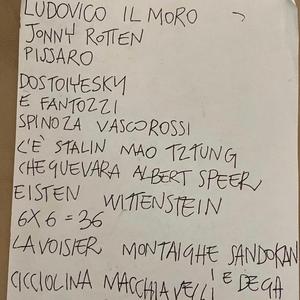 LUDOVICO IL MORO
JONNY ROTTEN
PISSARO
DOSTOIYESKY
E FANTOZZI
SPINOZA VASCOROSSI
C'È STALIN MAO TZTUNG
CHE GUEVARA ALBERT SPEER
EISTEN WITTENSTEIN
6X6=36
LAVOISIER MONTAIGHE SANDOKAN
CICCIOLINA MACCHIAVELLI E DEGA